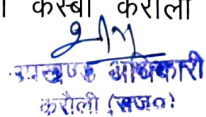 कस्बा करौली
उपखण्ड अधिकारी
करौली (राज०)